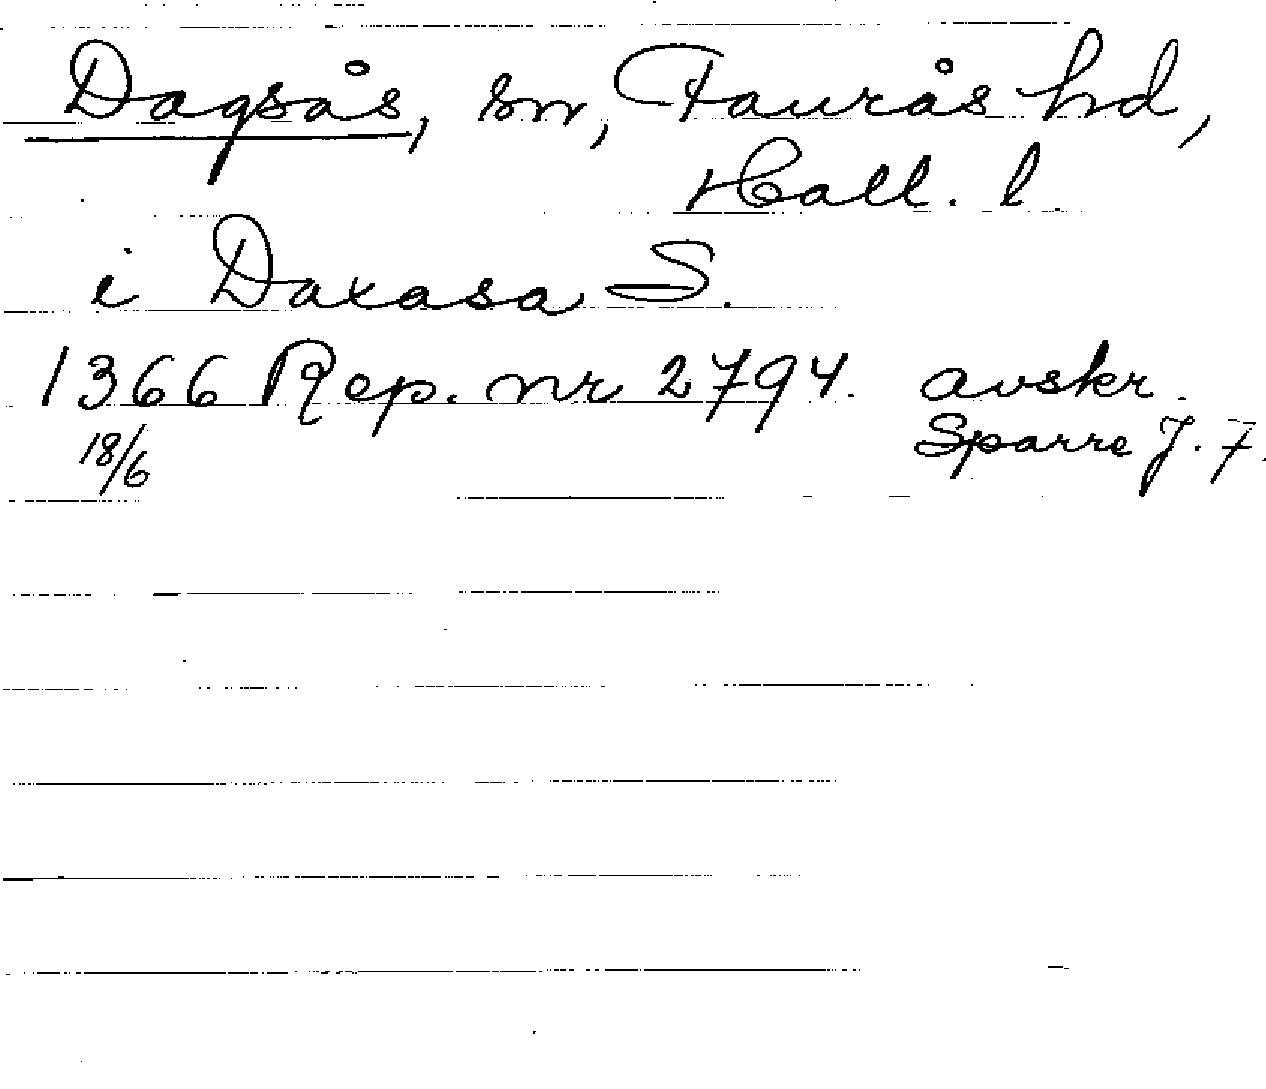 Dagsås, sn, Faurås hd,
Hall. l.
i Daxasa S.
1366 Rep. nr 2794. avskr.
18/6 Sparre J. F.